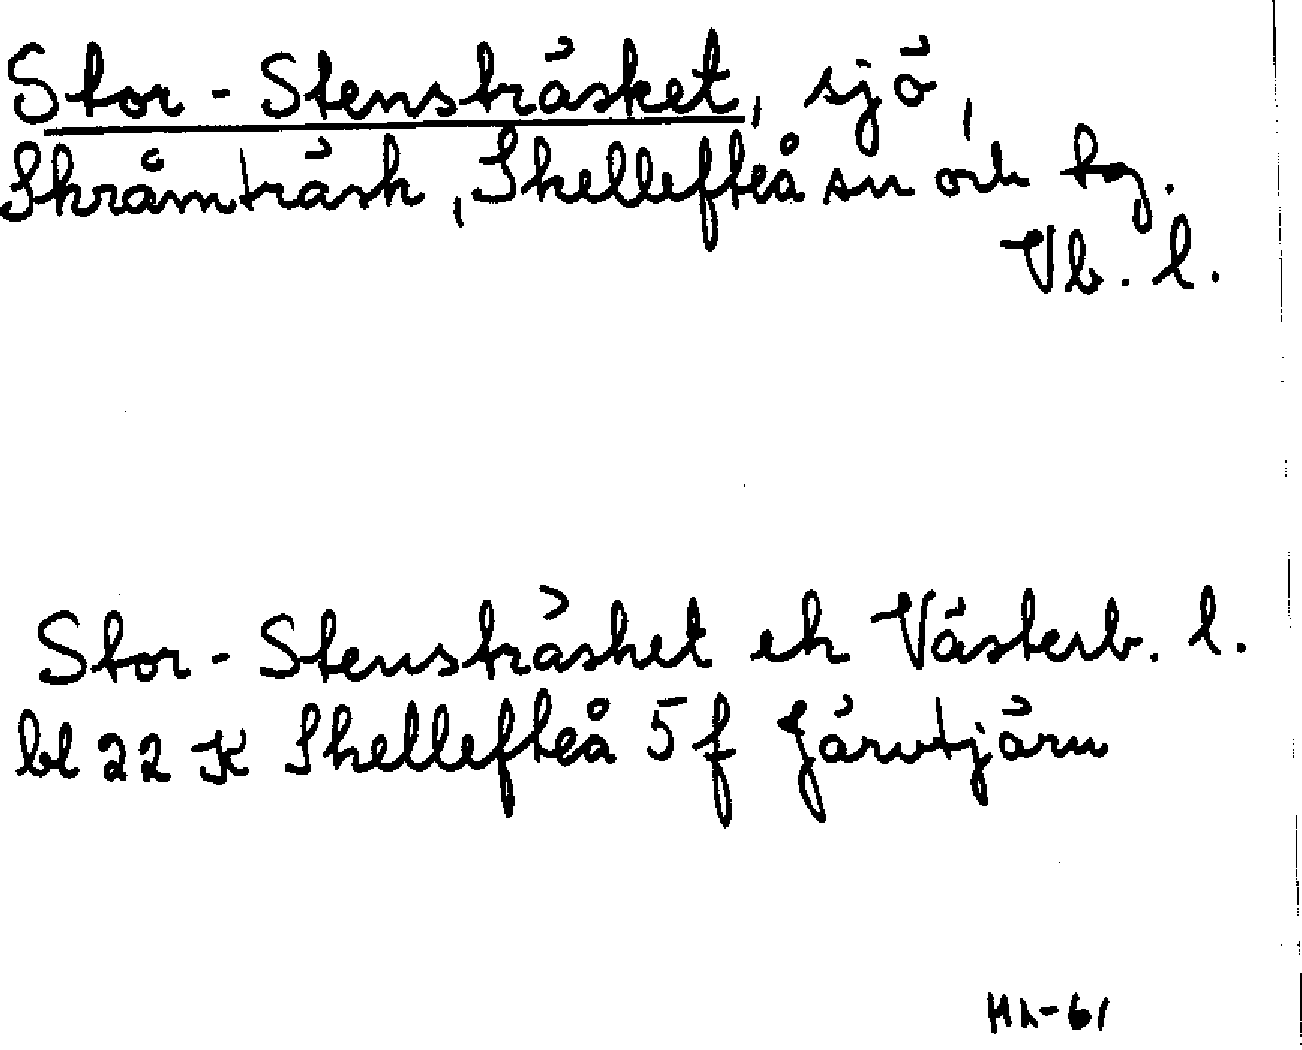 Stor-Stensträsket, sjö,
Skråmträsk, Skellefteå sn och tg.
Vb. l.
Stor-Stensträsket ek Västerb. l.
bl 22 K Skellefteå 5 f Järvtjärn